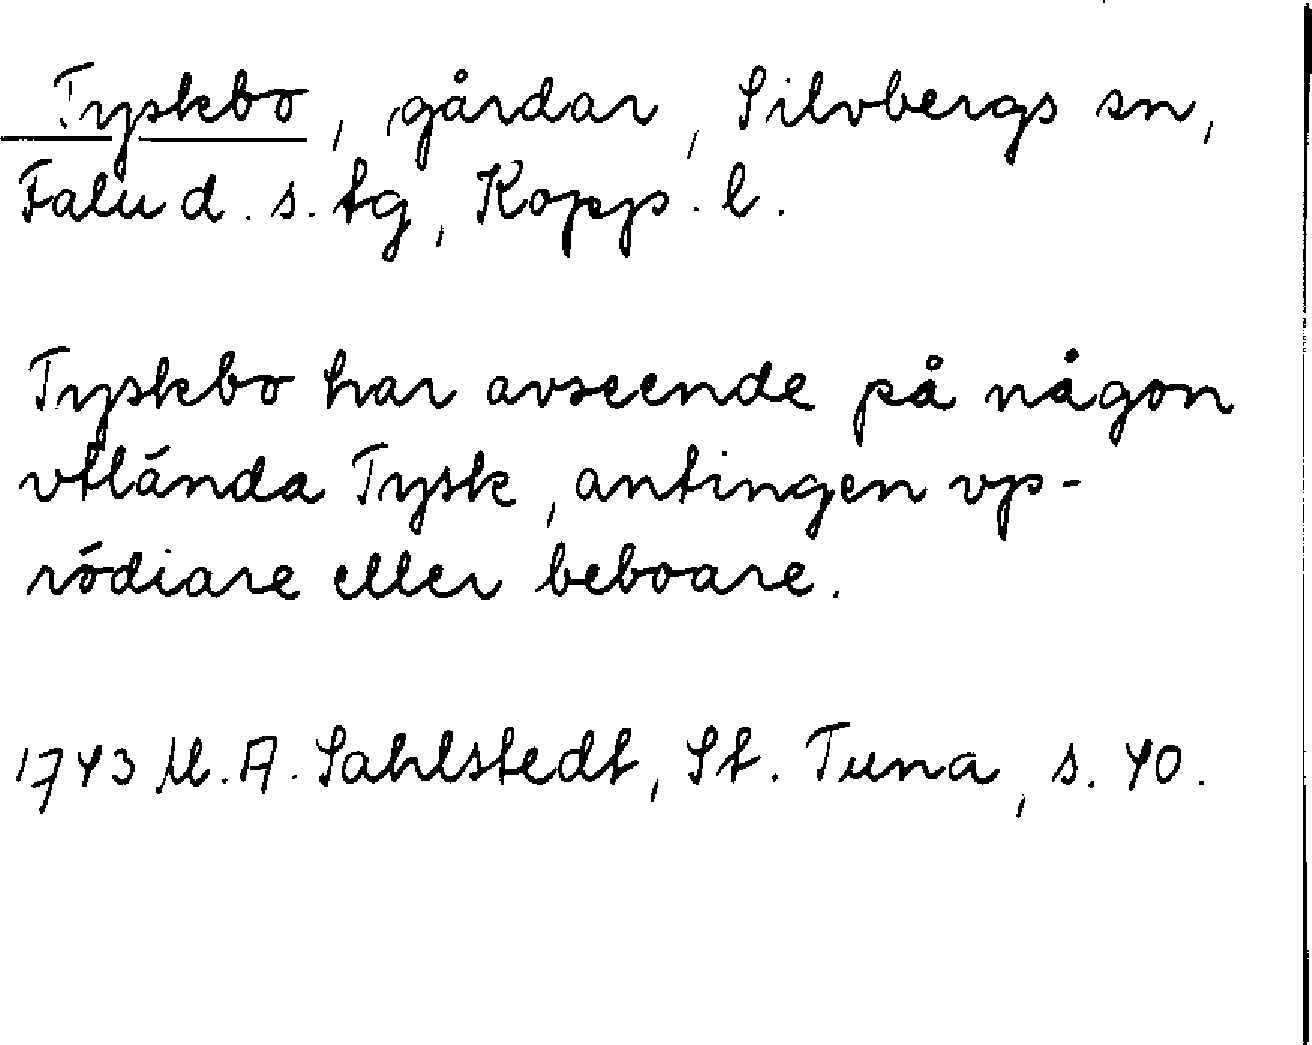 Tyskbo, gårdar, Silvbergs sn,
Falu d. s. tg, Kopp. l.
Tyskbo har avseende på någon
vtlända Tysk, antingen vp-
rödiare eller beboare.
1743 M. A. Sahlstedt, St. Tuna, s. 40.